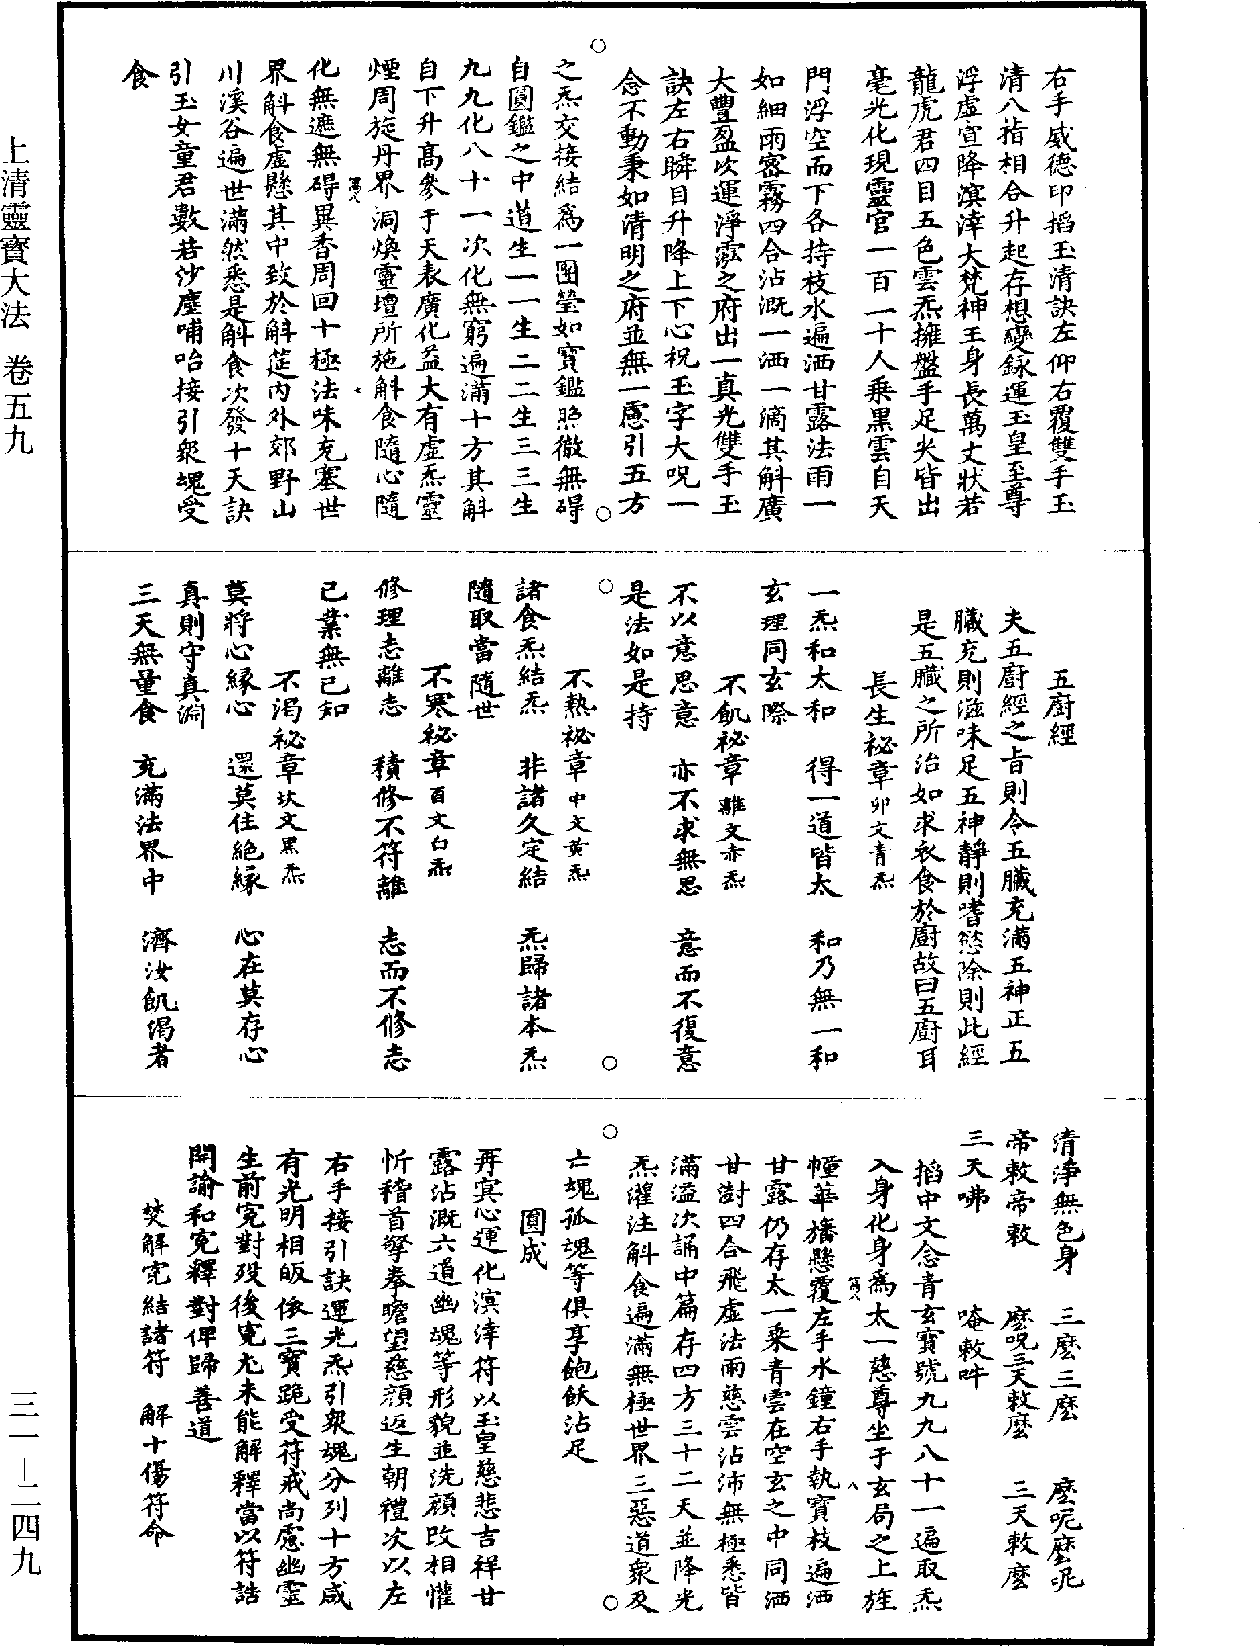 上清靈寶大法 卷五九
三一－二四九
右手威德印掐玉清訣左仰右覆雙手玉
清八指相合升起存想變錬運玉皇至尊
浮虛宣降溟涬大梵神王身長萬丈狀若
龍虎君四目五色雲炁擁盤手足尖皆出
毫光化現靈官一百一十人乘黑雲自天
門浮空而下各持枝水遍洒甘露法雨一
如細雨密霧四合沾溉一洒一滴其斛廣
大豐盈次運淨𣱵之府出一真光雙手玉
訣左右瞬目升降上下心祝玉字大呪一
念不動秉如清明之府並無一慮引五方
之炁交接結為一團瑩如寶鑑照徹無碍
自圓鑑之中道生一一生二二生三三生
九九化八十一次化無窮遍滿十方其斛
自下升高參于天表廣化益大有虛炁靈
煙周施丹界洞煥靈壇所施斛食隨心隨
化無遮無碍異香周回十極法味充塞世
界斛食虛懸其中致於斛筵內外郊野山
川溪谷遍世滿然悉是斛食次發十天訣
引玉女童君數若沙塵哺吢接引衆魂受
食
五廚經
夫五廚經之旨則令五臟充滿五神正五
臟充則滋味足五神靜則嗜慾除則此經
是五臟之所治如求衣食於廚故曰五廚耳
長生祕章卯文青炁
一炁和太和 得一道皆太 和乃無一和
玄理同玄際
不飢祕章離文赤炁
不以意思意 亦不求無思 意而不復意
是法如是持
不熱祕章中文黃炁
諸食炁結炁 非諸久定結 炁歸諸本炁
隨取當隨世
不寒祕章酉文白炁
修理志離志 積修不符離 志而不修志
已業無已知
不渴祕章坎文黑炁
莫將心緣心 還莫住絕緣 心在莫存心
真則守真淵
三天無量食 充滿法界中 濟汝飢渴者
清淨無色身 三麼三麼 麼呢麼呢
帝敕帝敕 麼呪三天敕麼 三天敕麼
三天咈 唵敕吽
掐中文念青玄寶號九九八十一遍取炁
入身化身為太一慈尊坐于玄局之上旌
幢華旛懸覆左手水鐘右手執寶枝遍洒
甘露仍存太一乘青雲在空玄之中同洒
甘澍四合飛虛法雨慈雲沾沛無極悉皆
滿溢次誦中篇存四方三十二天並降光
炁灌注斛食遍滿無極世界三惡道衆及
亡魂孤魂等俱享飽飫沾足
圓成
再冥心運化溟涬符以玉皇慈悲吉祥甘
露沾溉六道幽魂等形貌並洗顏改相懽
忻稽首擎拳瞻望慈顏返生朝禮次以左
右手接引訣運光炁引衆魂分列十方咸
有光明相皈依三寶跪受符戒尚慮幽靈
生前冤對歿後冤尤未能解釋當以符誥
開諭和冤釋對俾歸善道
焚解冤結諸符 解十傷符命